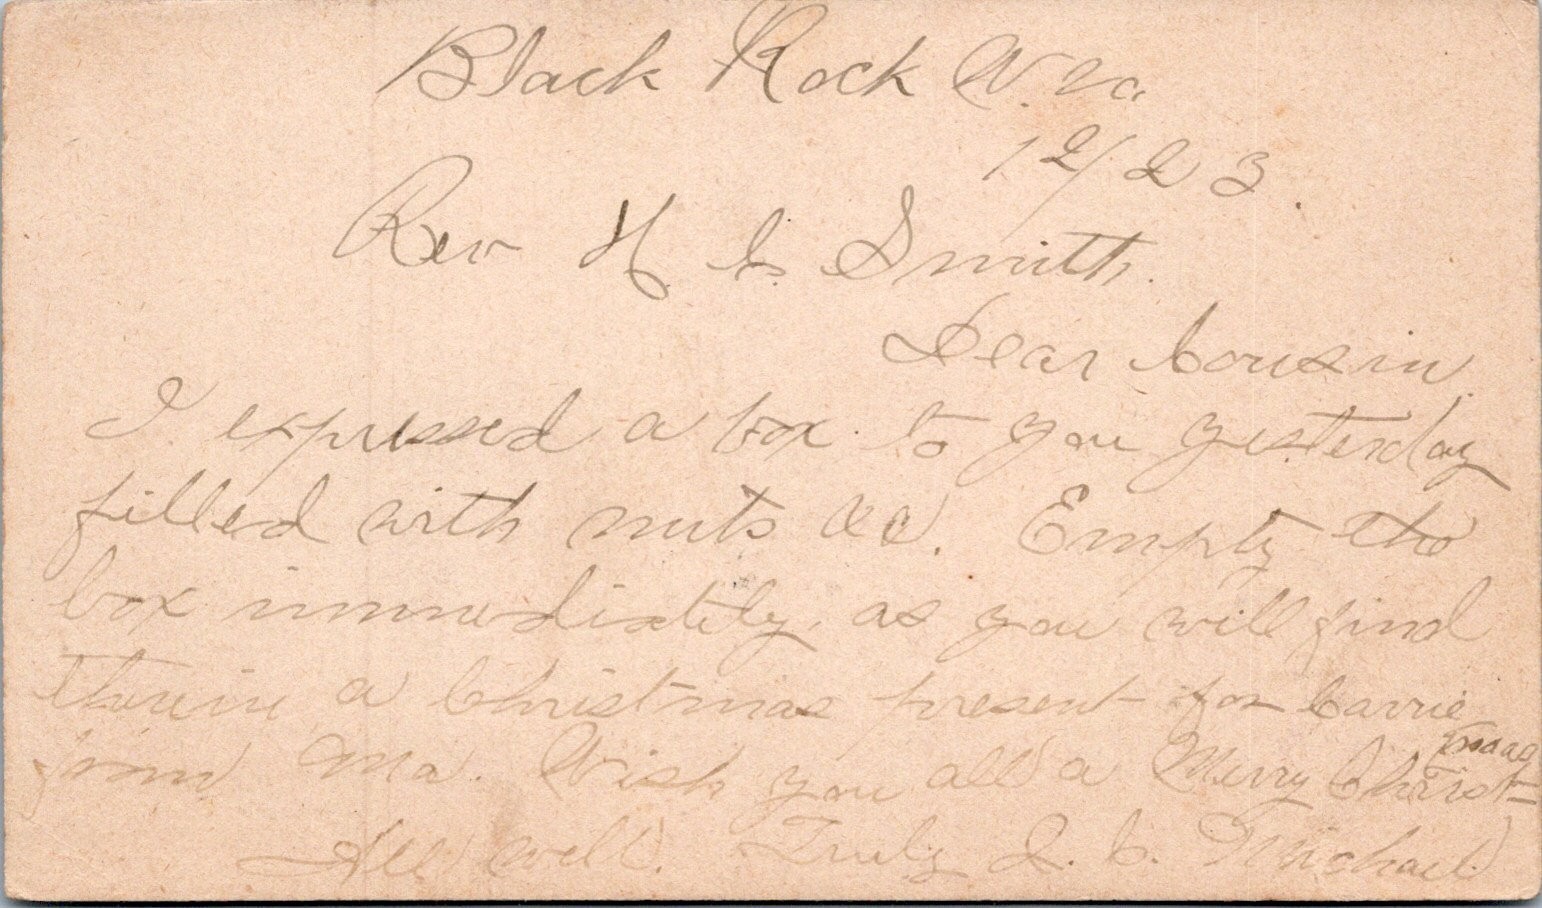 Black Rock W. Va.
12/23.
Rev H. C. Smith.
Dear Cousin
I expressed a box to you yesterday
filled with nuts &c. Empty the
box immediatily, as you will find
therein a Christmas present for Carrie
from Ma. Wish you all a Merry Christ=mas
All well. Truly I. C. Michael